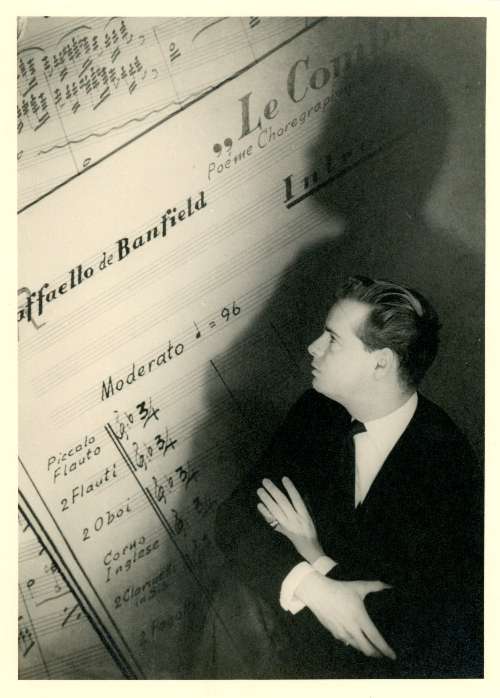 „Le Comb
Poème Choregraphi
Intro
Raffaello de Banfield
Moderato ♩ = 96
Piccolo
Flauto
2 Flauti
2 Oboi
Corno
Inglese
2 Clarinetti
2 Fagotti